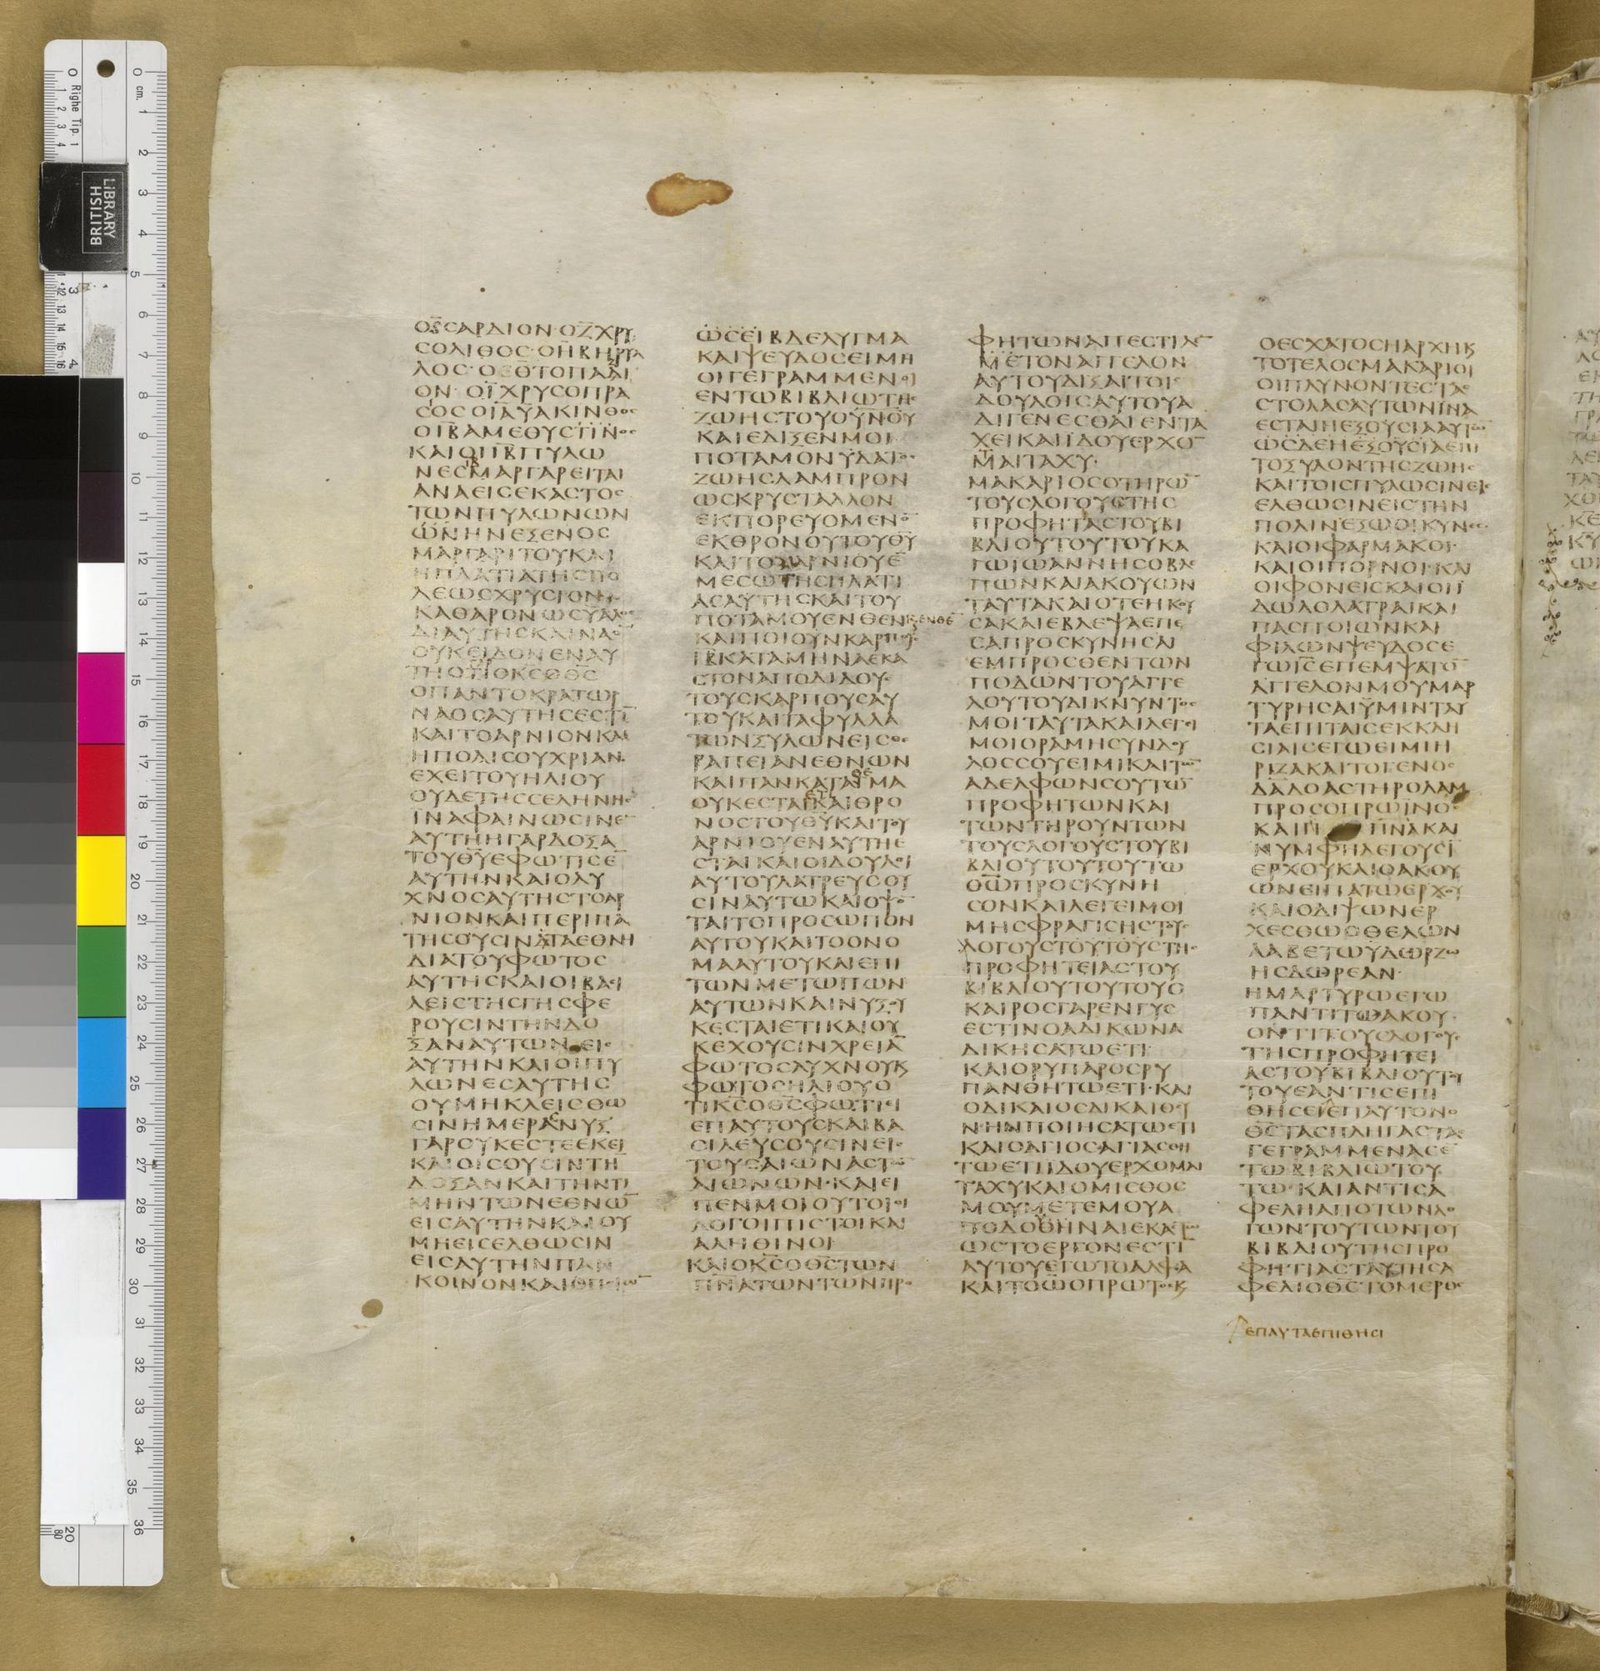 ΟϚΣΑΡΔΙΟΝ·ΟΖΧΡΥ
ϹΟΛΙΘΟϹ·ΟΗΒΗΡΥΛ
ΛΟϹ·ΟΘΤΟΠΑΔΙ
ΟΝ·ΟΙΧΡΥϹΟΠΡΑ
ϹΟϹΟΙΑΫΑΚΙΝΘΟϹ
ΟΙΒΑΜΕΘΥϹΤΙΝΟϹ
ΚΑΙΟΙΙΒΠΥΛΩ
ΝΕϹΙΒΜΑΡΓΑΡΕΙΤΑΙ
ΑΝΑΕΙϹΕΚΑϹΤΟϹ
ΤΩΝΠΥΛΩΝΩΝ
ΩΝΗΝΕΞΕΝΟϹ
ΜΑΡΓΑΡΙΤΟΥΚΑΙ
ΗΠΛΑΤΙΑΤΗϹΠΟ
ΛΕΩϹΧΡΥϹΙΟΝ
ΚΑΘΑΡΟΝΩϹΫΑΛΟϹ
ΔΙΑΥΓΗϹΚΑΙΝΑΟ̅
ΟΥΚΕΙΔΟΝΕΝΑΥ
ΤΗΟΤΙΟΚ̅Ϲ̅ΟΘ̅Ϲ̅
ΟΠΑΝΤΟΚΡΑΤΩΡ
ΝΑΟϹΑΥΤΗϹΕϹΤΙ̅
ΚΑΙΤΟΑΡΝΙΟΝΚΑΙ
ΗΠΟΛΙϹΟΥΧΡΙΑΝ
ΕΧΕΙΤΟΥΗΛΙΟΥ
ΟΥΔΕΤΗϹϹΕΛΗΝΗϹ
ΙΝΑΦΑΙΝΩϹΙΝΕ̅
ΑΥΤΗΗΓΑΡΔΟΞΑ
ΤΟΥΘ̅Υ̅ΕΦΩΤΙϹΕ̅
ΑΥΤΗΝΚΑΙΟΛΥ
ΧΝΟϹΑΥΤΗϹΤΟΑΡ
ΝΙΟΝΚΑΙΠΕΡΙΠΑ
ΤΗϹΟΥϹΙΝΤΑΕΘΝΗ
ΔΙΑΤΟΥΦΩΤΟϹ
ΑΥΤΗϹΚΑΙΟΙΒΑϹΙ
ΛΕΙϹΤΗϹΓΗϹΦΕ
ΡΟΥϹΙΝΤΗΝΔΟ
ΞΑΝΑΥΤΩΝΕΙϹ
ΑΥΤΗΝΚΑΙΟΙΠΥ
ΛΩΝΕϹΑΥΤΗϹ
ΟΥΜΗΚΛΕΙϹΘΩ
ϹΙΝΗΜΕΡΑϹΝΥΞ
ΓΑΡΟΥΚΕϹΤΕΕΚΕΙ
ΚΑΙΟΙϹΟΥϹΙΝΤΗ̅
ΔΟΞΑΝΚΑΙΤΗΝΤΙ
ΜΗΝΤΩΝΕΘΝΩ̅
ΕΙϹΑΥΤΗΝΚΑΙΟΥ
ΜΗΕΙϹΕΛΘΩϹΙΝ
ΕΙϹΑΥΤΗΝΠΑΝ
ΚΟΙΝΟΝΚΑΙΟΠΟΙΩ̅
ΩϹΕΙΒΔΕΛΥΓΜΑ
ΚΑΙΨΕΥΔΟϹΕΙΜΗ
ΟΙΓΕΓΡΑΜΜΕΝΟΙ
ΕΝΤΩΒΙΒΛΙΩΤΗϹ
ΖΩΗϹΤΟΥΟΥΝΟΥ
ΚΑΙΕΔΙΞΕΝΜΟΙ
ΠΟΤΑΜΟΝΫΔΑΤΟϹ
ΖΩΗϹΛΑΜΠΡΟΝ
ΩϹΚΡΥϹΤΑΛΛΟΝ
ΕΚΠΟΡΕΥΟΜΕΝΟ̅
ΕΚΘΡΟΝΟΥΤΟΥΘ̅Υ̅
ΚΑΙΤΟΥΑΡΝΙΟΥΕ̅
ΜΕϹΩΤΗϹΠΛΑΤΙ
ΑϹΑΥΤΗϹΚΑΙΤΟΥ
ΠΟΤΑΜΟΥΕΝΘΕΝΚΕΝΘΕ̅
ΚΑΙΠΟΙΟΥΝΚΑΡΠΟΥϹ
ΙΒΚΑΤΑΜΗΝΑΕΚΑ
ϹΤΟΝΑΠΟΔΙΔΟΥϹ
ΤΟΥϹΚΑΡΠΟΥϹΑΥ
ΤΟΥΚΑΙΤΑΦΥΛΛΑ
ΤΩΝΞΥΛΩΝΕΙϹΘΕ
ΡΑΠΕΙΑΝΕΘΝΩΝ
ΚΑΙΠΑΝΚΑΤΑΘΕΜΑ
ΟΥΚΕϹΤΑΙΕΤΙΚΑΙΘΡΟ
ΝΟϹΤΟΥΘ̅Υ̅ΚΑΙΤΟΥ
ΑΡΝΙΟΥΕΝΑΥΤΗΕ
ϹΤΑΙΚΑΙΟΙΔΟΥΛΟΙ
ΑΥΤΟΥΛΑΤΡΕΥϹΟΥ
ϹΙΝΑΥΤΩΚΑΙΟΨΟ̅
ΤΑΙΤΟΠΡΟϹΩΠΟΝ
ΑΥΤΟΥΚΑΙΤΟΟΝΟ
ΜΑΑΥΤΟΥΚΑΙΕΠΙ
ΤΩΝΜΕΤΩΠΩΝ
ΑΥΤΩΝΚΑΙΝΥΞΟΥ
ΚΕϹΤΑΙΕΤΙΚΑΙΟΥ
ΚΕΧΟΥϹΙΝΧΡΕΙΑ̅
ΦΩΤΟϹΛΥΧΝΟΥΚ
ΦΩΤΟϹΗΛΙΟΥΟ
ΤΙΚ̅Ϲ̅ΟΘ̅Ϲ̅ΦΩΤΙΕΙ
ΕΠΑΥΤΟΥϹΚΑΙΒΑ
ϹΙΛΕΥϹΟΥϹΙΝΕΙϹ
ΤΟΥϹΑΙΩΝΑϹΤΩ̅
ΑΙΩΝΩΝ·ΚΑΙΕΙ
ΠΕΝΜΟΙΟΥΤΟΙΟΙ
ΛΟΓΟΙΠΙϹΤΟΙΚΑΙ
ΑΛΗΘΙΝΟΙ
ΚΑΙΟΚ̅Ϲ̅ΟΘ̅Ϲ̅ΤΩΝ
Π̅Ν̅ΑΤΩΝΤΩΝΠΡΟ
ΦΗΤΩΝΑΠΕϹΤΙΛΕ̅
ΜΕΤΟΝΑΓΓΕΛΟΝ
ΑΥΤΟΥΔΙΞΑΙΤΟΙϹ
ΔΟΥΛΟΙϹΑΥΤΟΥΑ
ΔΙΓΕΝΕϹΘΑΙΕΝΤΑ
ΧΕΙΚΑΙΪΔΟΥΕΡΧΟ
ΜΑΙΤΑΧΥ·
ΜΑΚΑΡΙΟϹΟΤΗΡΩ̅
ΤΟΥϹΛΟΓΟΥϹΤΗϹ
ΠΡΟΦΗΤΑϹΤΟΥΒΙ
ΒΛΙΟΥΤΟΥΤΟΥΚΑ
ΓΩΪΩΑΝΝΗϹΟΒΛΕ
ΠΩΝΚΑΙΑΚΟΥΩΝ
ΤΑΥΤΑΚΑΙΟΤΕΗΚΟΥ
ϹΑΚΑΙΕΒΛΕΨΑΕΠΕ
ϹΑΠΡΟϹΚΥΝΗϹΑΙ
ΕΜΠΡΟϹΘΕΝΤΩΝ
ΠΟΔΩΝΤΟΥΑΓΓΕ
ΛΟΥΤΟΥΔΙΚΝΥΝΤΟϹ
ΜΟΙΤΑΥΤΑΚΑΙΛΕΓΕΙ
ΜΟΙΟΡΑΜΗϹΥΝΔΟΥ
ΛΟϹϹΟΥΕΙΜΙΚΑΙΤΩ̅
ΑΔΕΛΦΩΝϹΟΥΤΩ̅
ΠΡΟΦΗΤΩΝΚΑΙ
ΤΩΝΤΗΡΟΥΝΤΩΝ
ΤΟΥϹΛΟΓΟΥϹΤΟΥΒΙ
ΒΛΙΟΥΤΟΥΤΟΥΤΩ
ΘΩ̅ΠΡΟϹΚΥΝΗ
ϹΟΝΚΑΙΛΕΓΕΙΜΟΙ
ΜΗϹΦΡΑΓΙϹΗϹΤΟΥϹ
ΛΟΓΟΥϹΤΟΥΤΟΥϹΤΗϹ
ΠΡΟΦΗΤΕΙΑϹΤΟΥ
ΒΙΒΛΙΟΥΤΟΥΤΟΥΟ
ΚΑΙΡΟϹΓΑΡΕΝΓΥϹ
ΕϹΤΙΝΟΑΔΙΚΩΝΑ
ΔΙΚΗϹΑΤΩΕΤΙ
ΚΑΙΟΡΥΠΑΡΟϹΡΥ
ΠΑΝΘΗΤΩΕΤΙ·ΚΑΙ
ΟΔΙΚΑΙΟϹΔΙΚΑΙΟϹΥ
ΝΗΝΠΟΙΗϹΑΤΩΕΤΙ
ΚΑΙΟΑΓΙΟϹΑΓΙΑϹΘΗ
ΤΩΕΤΙΪΔΟΥΕΡΧΟΜΑΙ
ΤΑΧΥΚΑΙΟΜΙϹΘΟϹ
ΜΟΥΜΕΤΕΜΟΥΑ
ΠΟΔΟΘΗΝΑΙΕΚΑϹΤΩ
ΩϹΤΟΕΡΓΟΝΕϹΤΙ̅
ΑΥΤΟΥΕΓΩΤΟΑΛΦΑ
ΚΑΙΤΟΩΟΠΡΩΤΟϹΚ
ΟΕϹΧΑΤΟϹΗΑΡΧΗΚ
ΤΟΤΕΛΟϹΜΑΚΑΡΙΟΙ
ΟΙΠΛΥΝΟΝΤΕϹΤΑϹ
ϹΤΟΛΑϹΑΥΤΩΝΪΝΑ
ΕϹΤΑΙΗΕΞΟΥϹΙΑΑΥΤΩ̅
ΩϹΔΕΗΕΞΟΥϹΙΑΕΠΙ
ΤΟΞΥΛΟΝΤΗϹΖΩΗϹ
ΚΑΙΤΟΙϹΠΥΛΩϹΙΝΕΙϹ
ΕΛΘΩϹΙΝΕΙϹΤΗΝ
ΠΟΛΙΝΕΞΩΟΙΚΥΝΕϹ
ΚΑΙΟΙΦΑΡΜΑΚΟΙ·
ΚΑΙΟΙΠΟΡΝΟΙ·ΚΑΙ
ΟΙΦΟΝΕΙϹΚΑΙΟΙΪ
ΔΩΛΟΛΑΤΡΑΙΚΑΙ
ΠΑϹΠΟΙΩΝΚΑΙ
ΦΙΛΩΝΨΕΥΔΟϹΕ
ΓΩΙ̅Ϲ̅ΕΠΕΜΨΑΤΟ̅
ΑΓΓΕΛΟΝΜΟΥΜΑΡ
ΤΥΡΗϹΑΙΫΜΙΝΤΑΥ
ΤΑΕΠΙΤΑΙϹΕΚΚΛΗ
ϹΙΑΙϹΕΓΩΕΙΜΙΗ
ΡΙΖΑΚΑΙΤΟΓΕΝΟϹ
ΔΑΔΟΑϹΤΗΡΟΛΑΜ
ΠΡΟϹΟΠΡΩΪΝΟϹ
ΚΑΙΠ ΠΝΑΚΑΙ
ΝΥΜΦΗΛΕΓΟΥϹΙ̅
ΕΡΧΟΥΚΑΙΟΑΚΟΥ
ΩΝΕΙΠΑΤΩΕΡΧΟΥ
ΚΑΙΟΔΙΨΩΝΕΡ
ΧΕϹΘΩΟΘΕΛΩΝ
ΛΑΒΕΤΩΫΔΩΡΖΩ
ΗϹΔΩΡΕΑΝ·
ΗΜΑΡΤΥΡΩΕΓΩ
ΠΑΝΤΙΤΩΑΚΟΥ
ΟΝΤΙΤΟΥϹΛΟΓΟΥϹ
ΤΗϹΠΡΟΦΗΤΕΙ
ΑϹΤΟΥΒΙΒΛΙΟΥΤΟΥ
ΤΟΥΕΑΝΤΙϹΕΠΙ
ΘΗϹΕΙΕΠΑΥΤΟΝΟ
Θ̅Ϲ̅ΤΑϹΠΛΗΓΑϹΤΑϹ
ΓΕΓΡΑΜΜΕΝΑϹΕ̅
ΤΩΒΙΒΛΙΩΤΟΥ
ΤΩ·ΚΑΙΑΝΤΙϹΑ
ΦΕΛΗΑΠΟΤΩΝΛΟ
ΓΩΝΤΟΥΤΩΝΤΟΥ
ΒΙΒΛΙΟΥΤΗϹΠΡΟ
ΦΗΤΙΑϹΤΑΥΤΗϹΑ
ΦΕΛΙΟΘ̅Ϲ̅ΤΟΜΕΡΟϹ
ΕΠΑΥΤΑΕΠΙΘΗϹΙ
BRITISH
LIBRARY